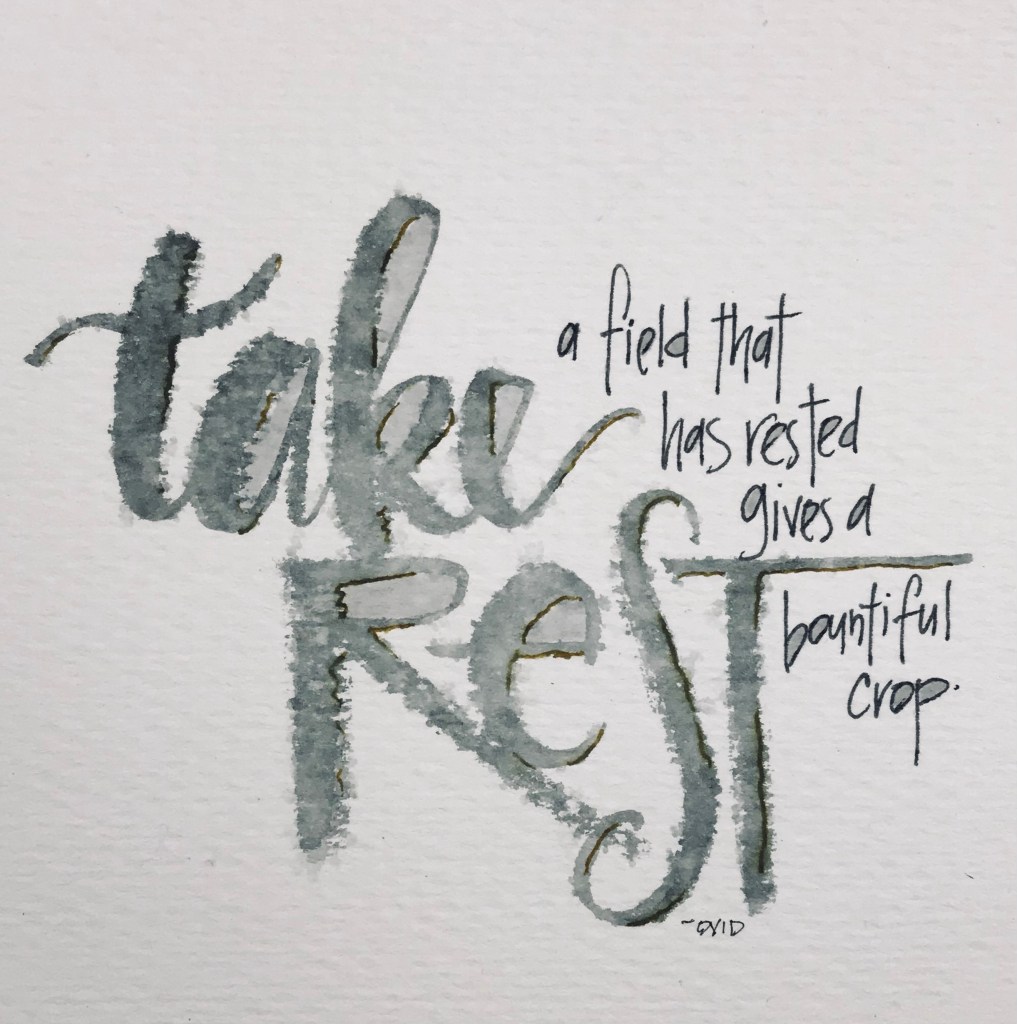 take
ReST
a field that
has rested
gives a
bountiful
crop.
~OVID